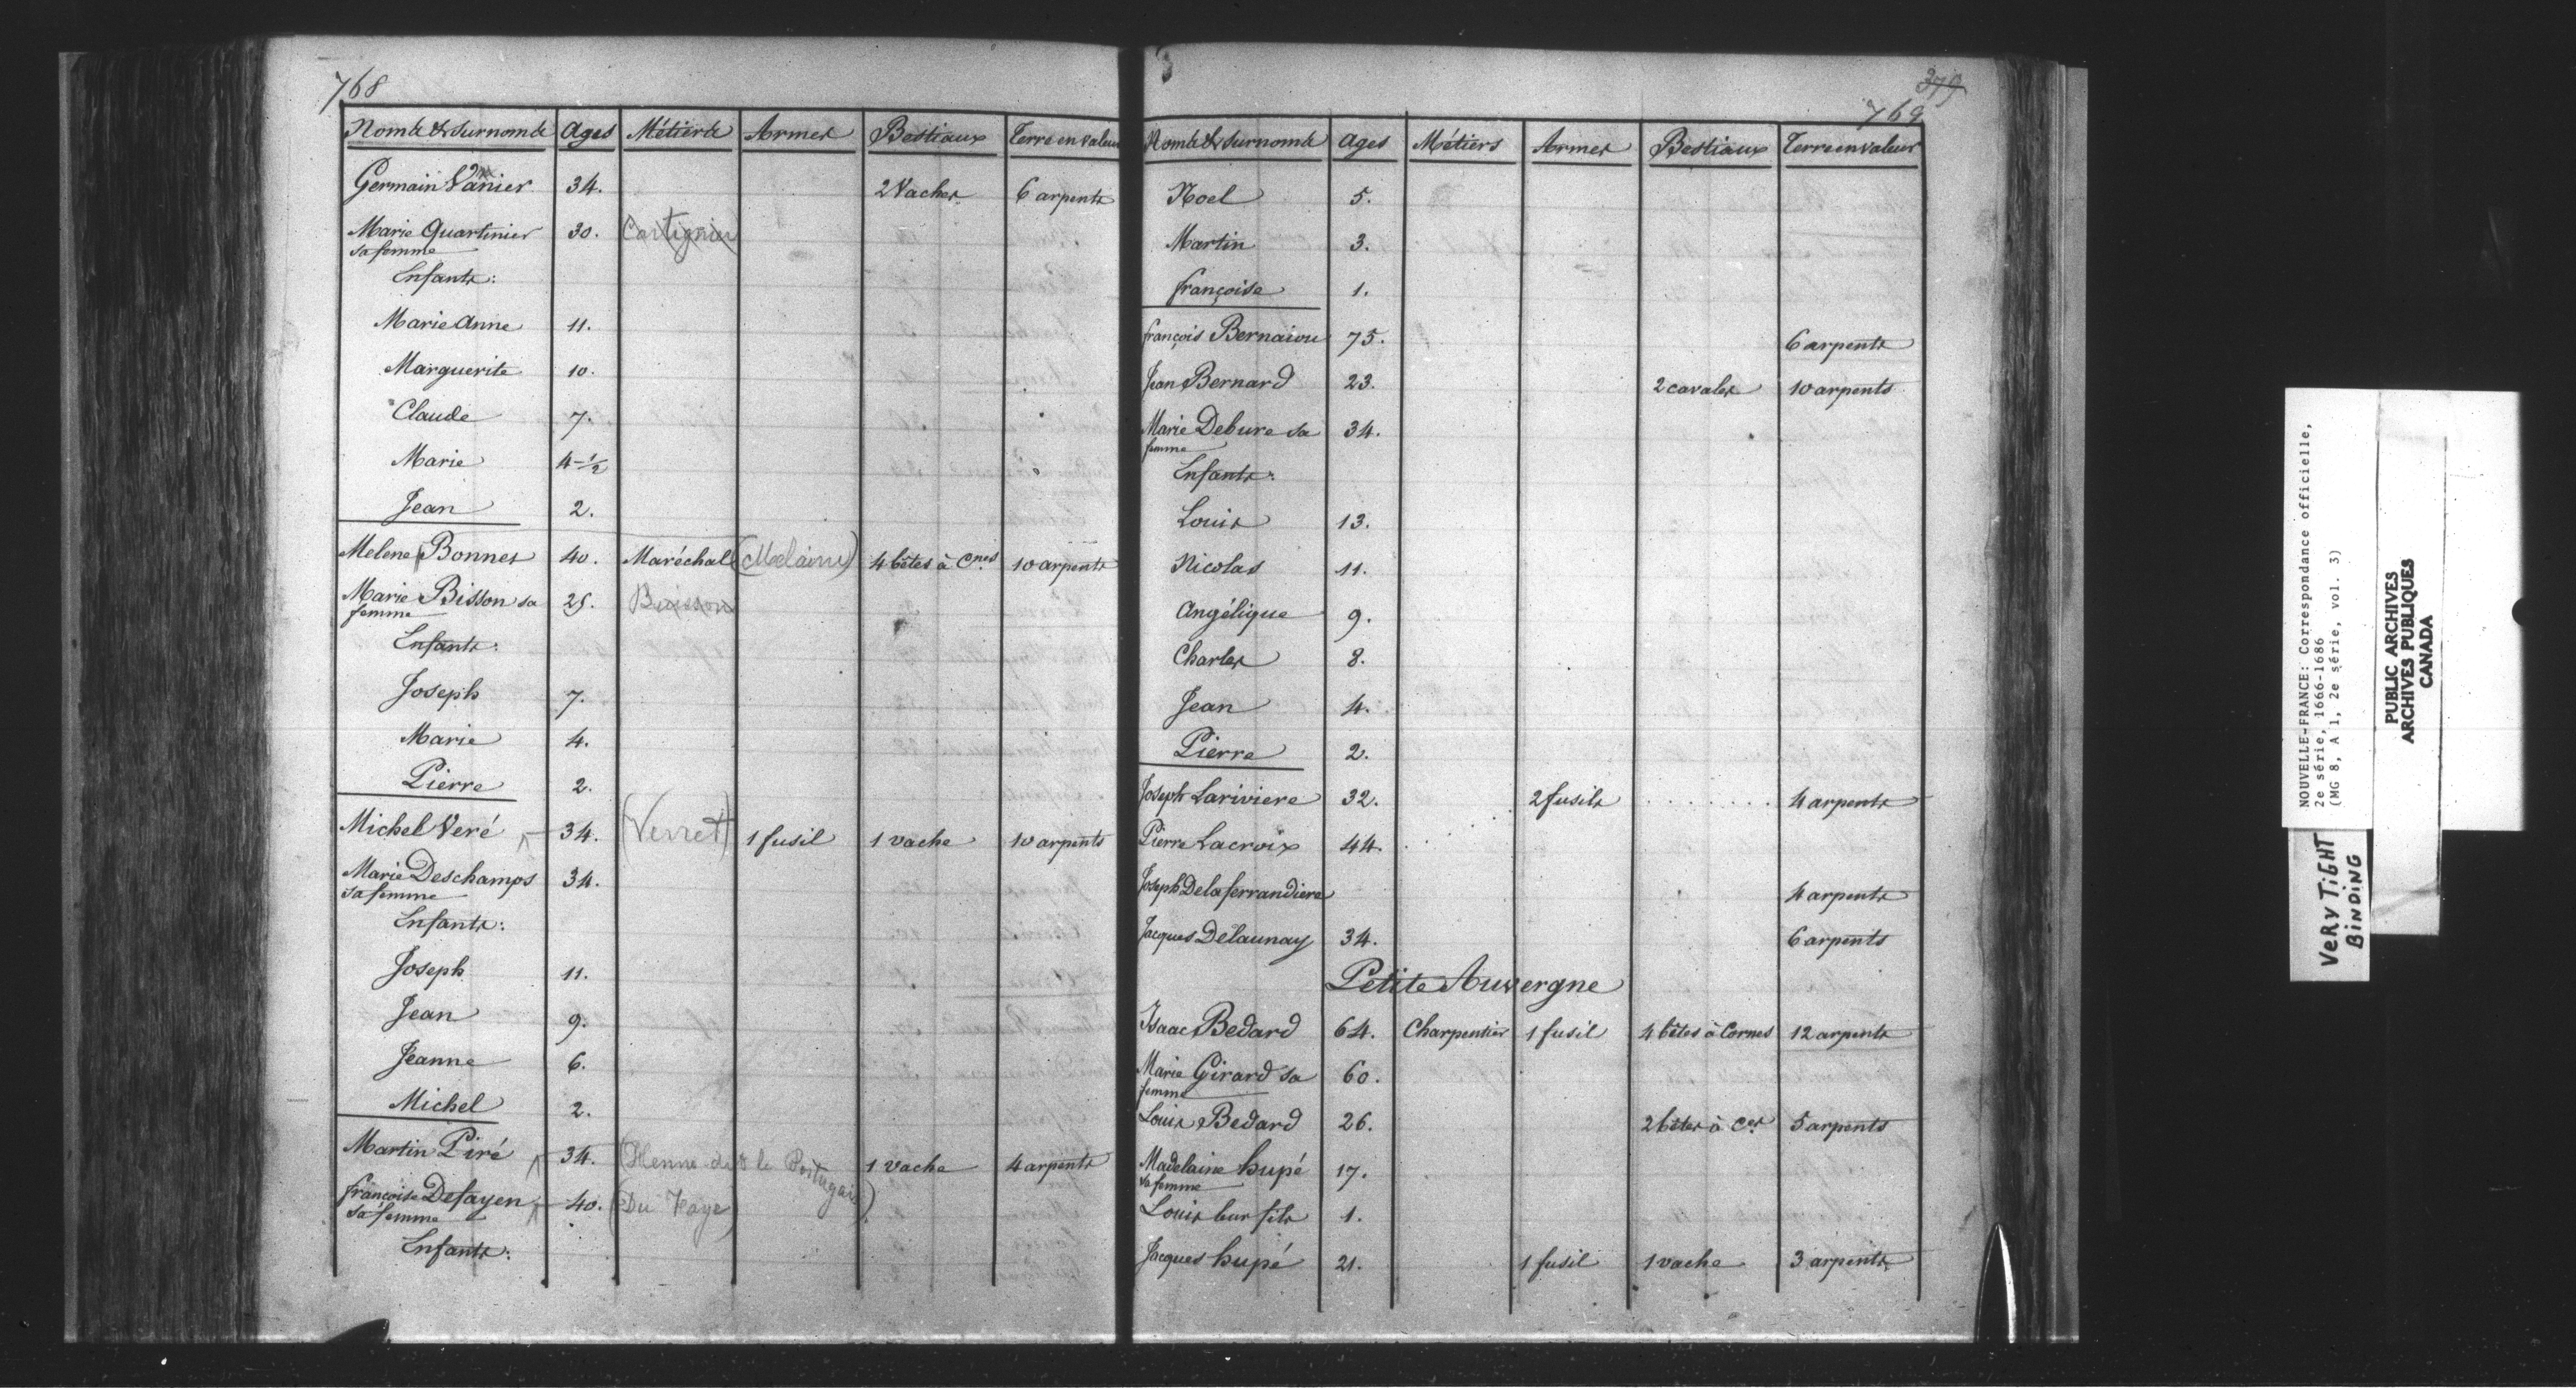 768
Noms & Surnoms Ages Métiers Armes Bestiaux Terre en valeur
Germain Vanier 34. 2 Vaches 6 arpents
Marie Quartinier 30. Cartignier
sa femme
Enfants:
Marie Anne 11.
Marguerite 10.
Claude 7.
Marie 4-1/2
Jean 2.
Melene Bonnes 40. Maréchal (Melaine) 4 bêtes à Cnes 10 arpents
Marie Bisson sa 25. Buisson
femme
Enfants:
Joseph 7.
Marie 4.
Pierre 2.
Michel Veré 34. (Verret) 1 fusil 1 vache 10 arpents
Marie Deschamps 34.
sa femme
Enfants:
Joseph 11.
Jean 9.
Jeanne 6.
Michel 2.
Martin Piré 34. dt le Portugais) 1 vache 4 arpents
françoise Defayen 40. (Du Faye)
sa femme
Enfants:
379
769
Noms & Surnoms Ages Métiers Armes Bestiaux Terre en valeur
Noel 5.
Martin 3.
françoise 1.
françois Bernaiou 75. 6 arpents
Jean Bernard 23. 2 cavales 10 arpents
Marie Debure sa 34.
femme
Enfants:
Louis 13.
Nicolas 11.
Angélique 9.
Charles 8.
Jean 4.
Pierre 2.
Joseph Lariviere 32. 2 fusils . . . . . . . . 4 arpents
Pierre Lacroix 44.
Joseph Delaferrandiere 4 arpents
Jacques Delaunay 34. 6 arpents
Petite Auvergne
Isaac Bedard 64. Charpentier 1 fusil 4 bêtes à Cornes 12 arpents
Marie Girard sa 60.
femme
Louis Bedard 26. 2 bêtes à Ces 5 arpents
Madelaine hupé 17.
sa femme
Louis leur fils 1.
Jacques hupé 21. 1 fusil 1 vache 3 arpents
NOUVELLE-FRANCE: Correspondance officielle,
2e série, 1666-1686
(MG 8, A 1, 2e série, vol. 3)
PUBLIC ARCHIVES
ARCHIVES PUBLIQUES
CANADA
VERY TIGHT
BINDING